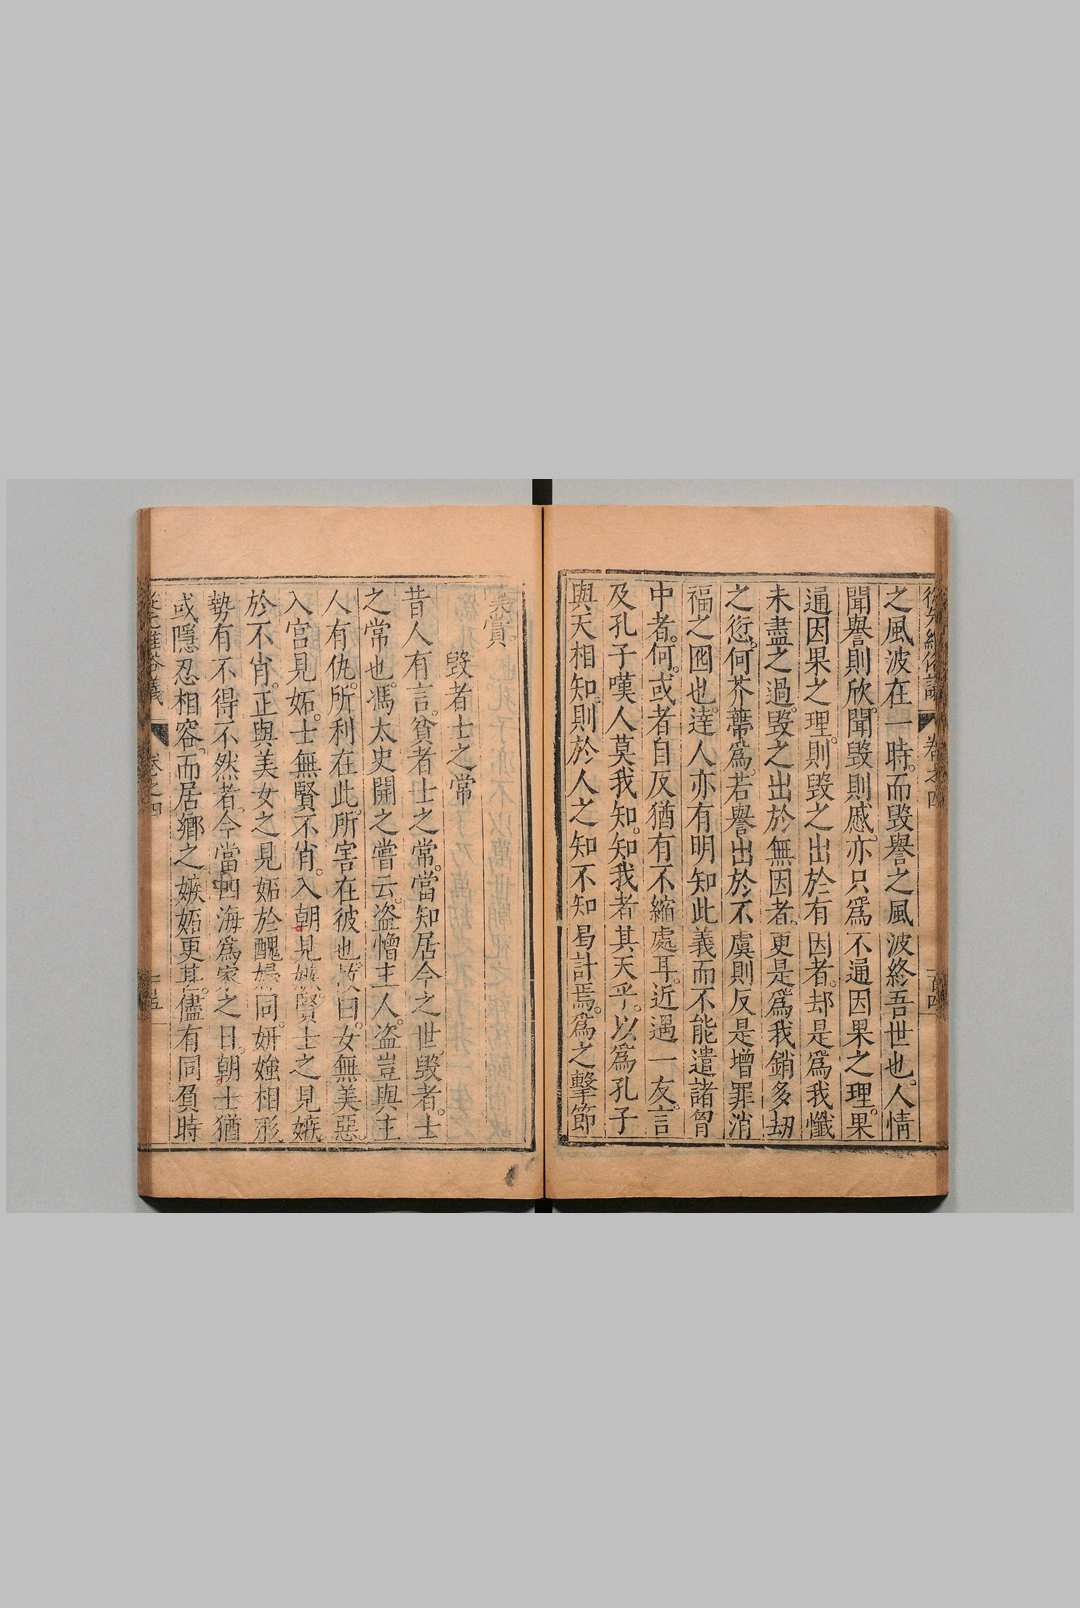 卷之四
之風波在一時。而毀譽之風波終吾世也。人情
聞譽則欣。聞毀則慼。亦只爲不通因果之理。果
通因果之理。則毀之出於有因者。却是爲我懺
未盡之過。毀之出於無因者。更是爲我銷多劫
之愆。何芥蔕爲。若譽出於不虞。則反是增罪消
福之囮也。達人亦有明知此義而不能遣諸胷
中者。何。或者自反猶有不縮處耳。近遇一友。言
及孔子嘆人莫我知。知我者其天乎。以爲孔子
與天相知。則於人之知不知曷計焉。爲之擊節
嘆賞
毀者士之常
昔人有言。貧者士之常。當知居今之世。毀者。士
之常也。馮太史開之嘗云。盜憎主人。盜豈與主
人有仇。所利在此。所害在彼也。故曰。女無美惡。
入宮見妬。士無賢不肖。入朝見嫉。賢士之見嫉
於不肖。正與美女之見妬於醜婦同。妍媸相形
勢有不得不然者。今當四海爲家之日。朝士猶
或隱忍相容。而居鄉之嫉妬更甚。儘有同貟時
卷之四